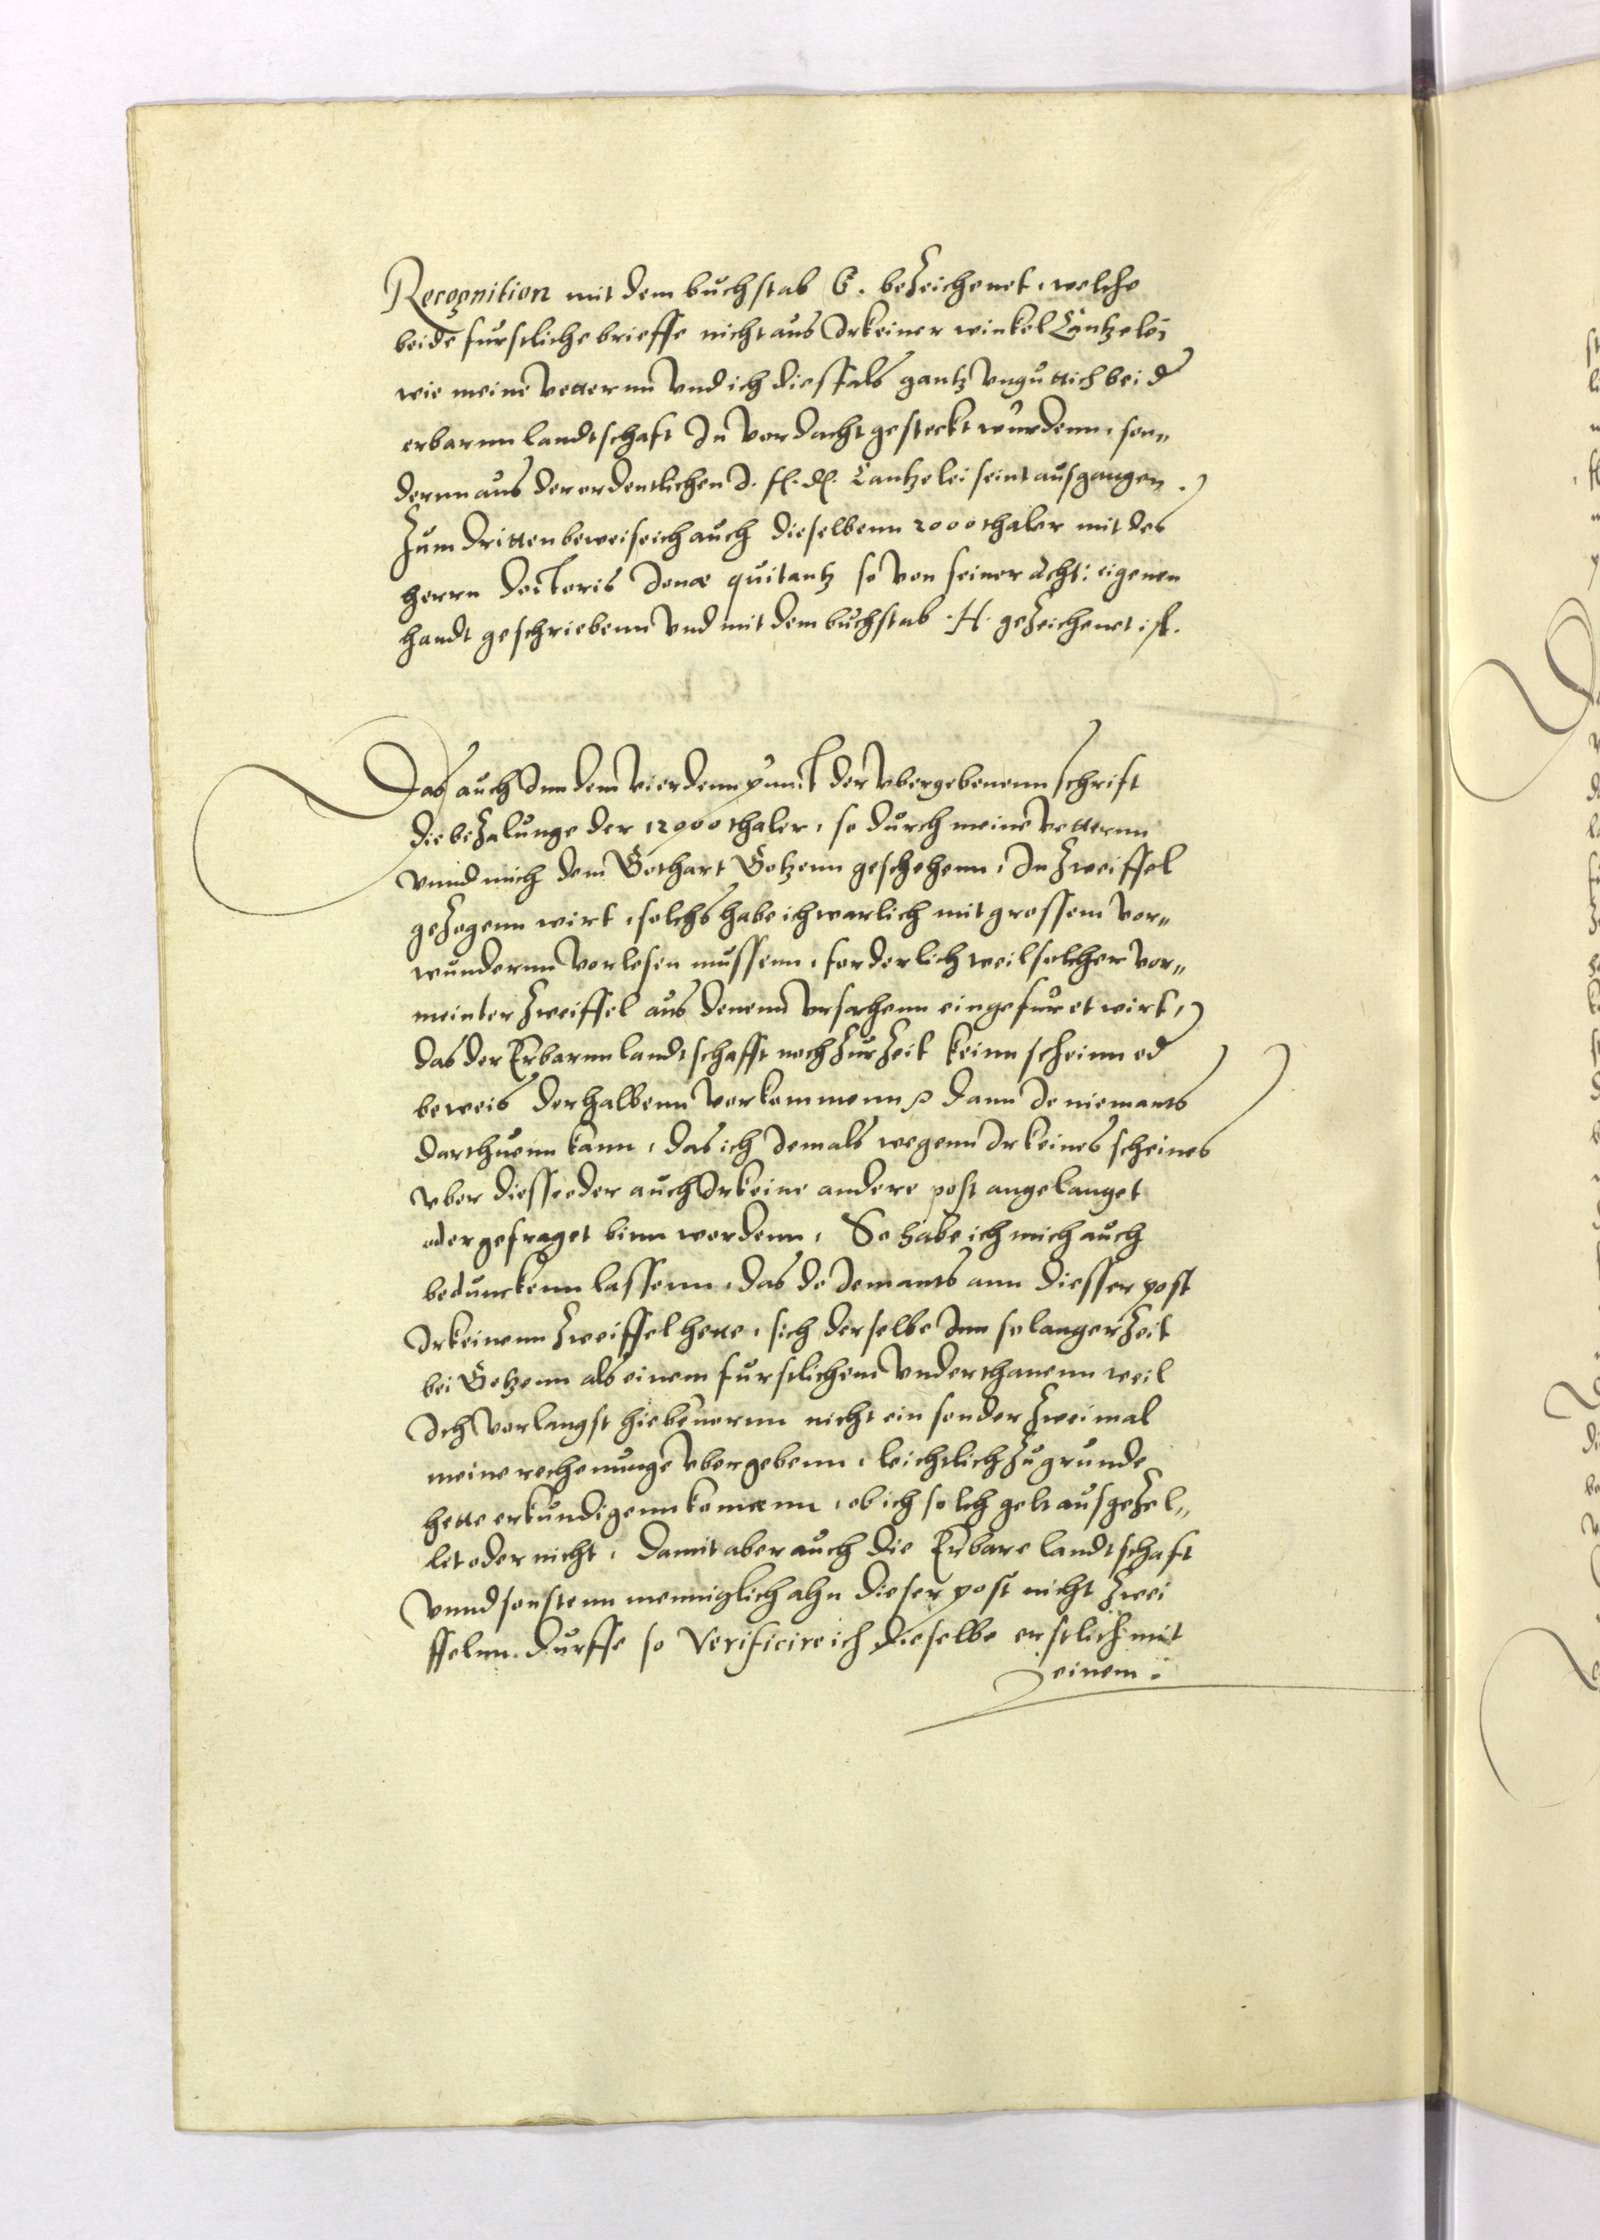 Recognition mit dem buchstab G. bezeichenet, welche
beide furstliche brieffe nicht aus Irkeiner winkel Cantzelei
wie meine vetternn vnd ich diesfals gantz vngutlich bei d
erbarnn landtschaft In vordacht gesteckt wurdenn, son„
dernn aus der ordentlichen J. f. d. Cantzelei seint ausgangen.
Zum dritten beweise ich auch dieselbenn 2000 thaler mit des
herrn doctoris Jonæ quitantz so von seiner acht: eigenen
handt geschriebenn vnd mit dem buchstab .H. gezeichenet ist.
Das auch Inn dem vierdenn punct der vbergebenenn schrift
die bezalunge der 12000 thaler, so durch meine vetternn
vnnd mich dem Gothart Gotzenn geschehenn, In zweiffel
gezogenn wirt, solchs habe ich warlich mit grossem vor„
wundernn vorlesen mussenn, forderlich weil solcher vor„
meinter zweiffel aus denenn vrsachenn eingefuret wirt,
das der Erbarnn landtschafft noch zur Zeit keinn scheinn od
beweis derhalbenn vorkommenn dann Je niemants
darthuenn kann, das ich Jemals wegenn Irkeines scheines
vber diesse oder auch Irkeine andere post angelanget
oder gefraget binn wordenn, So habe ich mich auch
bedunckenn lassenn, das do Jemants ann diesser post
Irkeinenn zweiffel hette, sich derselbe Inn so langer Zeit
bei Gotzenn als einem furstlichenn vnderthanenn weil
Ich vorlangst hiebeuornn nicht ein sonder zweimal
meine rechenunge vbergebenn, leichtlich zu grunde
hette erkundigenn konnenn, ob ich solch gelt ausgezel„
let oder nicht, Damit aber auch die Erbare landtschaft
vnnd sonstenn menniglich ahn dieser post nicht zwei
ffelnn durffe so Verificire ich dieselbe erstlich mit
einem: